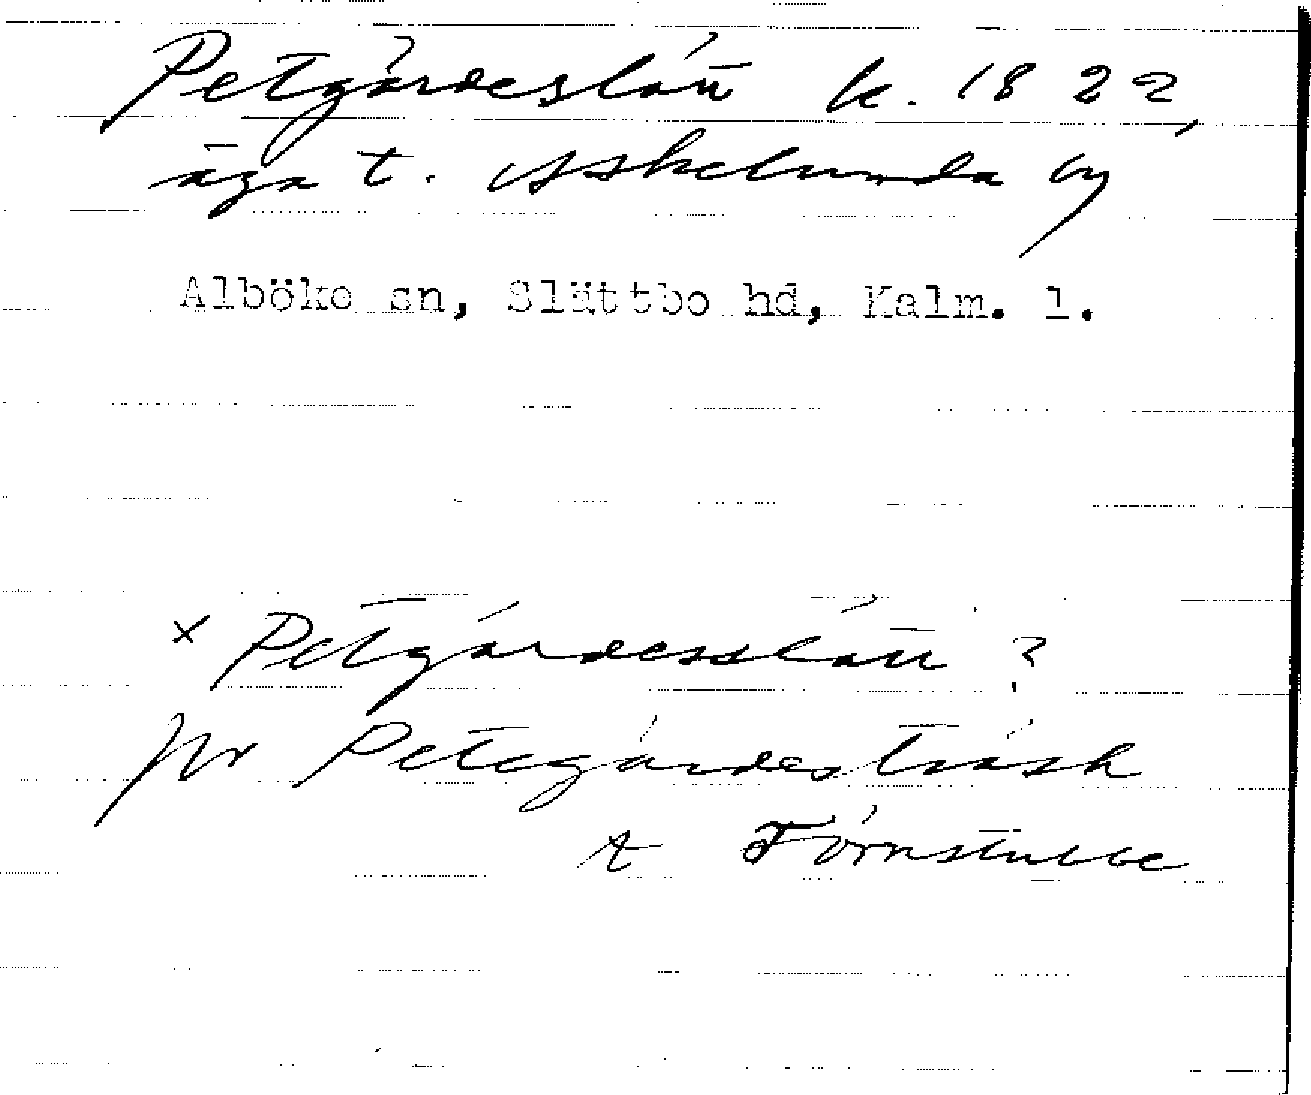 Petgärdeslätt k. 1822,
äga t. Askelunda by
Alböke sn, Slättbo hd, Kalm. l.
x Petgärdesslätt ?
jfr Petegärdesträsk
t Törnstubbe